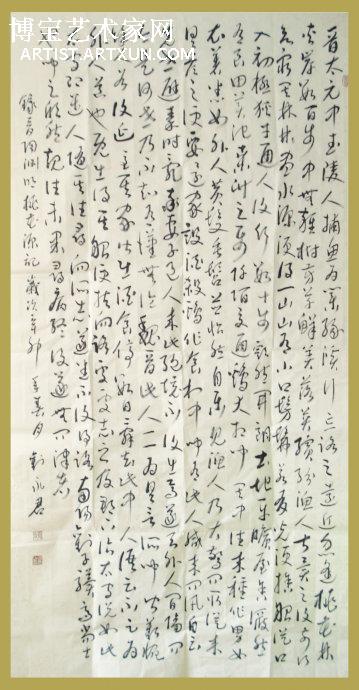 博宝艺术家网
ARTIST.ARTXUN.COM
晋太元中武陵人捕鱼为业缘溪行忘路之远近忽逢桃花林
夹岸数百步中无杂树芳草鲜美落英缤纷渔人甚异之复前行
欲穷其林林尽水源便得一山山有小口髣髴若有光便捨船从口
入初极狭才通人复行数十步豁然开朗土地平旷屋舍俨然
有良田美池桑竹之属阡陌交通鸡犬相闻其中往来种作男女
衣着悉如外人黄发垂髫并怡然自乐见渔人乃大惊问所从来
具答之便要还家设酒杀鸡作食村中闻有此人咸来问讯自云
先世避秦时乱率妻子邑人来此绝境不复出焉遂与外人间隔问
今是何世乃不知有汉无论魏晋此人一一为具言所闻皆叹惋
余人各复延至其家皆出酒食停数日辞去此中人语云不足为
外人道也既出得其船便扶向路处处志之及郡下诣太守说如此
太守即遣人随其往寻向所志遂迷不复得路南阳刘子骥高尚士
也闻之欣然规往未果寻病终后遂无问津者
录晋陶渊明桃花源记岁次辛卯 春月 刘永君